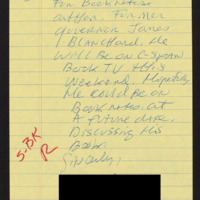 For Booknotes
author. Former
governor James
J Blanchard. He
will be on C-Span
Book TV this
weekend. 
He could be on
Booknotes at
a future date.
Discussing his
Book.
Sincerely,
5-BK
R